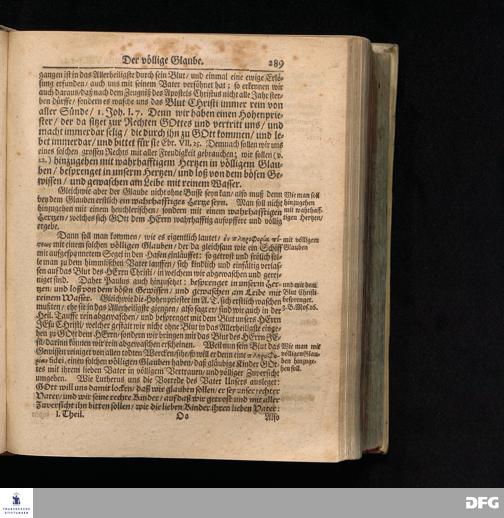 Der völlige Glaube. 289
gangen ist in das Allerheiligste durch sein Blut/ und einmal eine ewige Erlö-
sung erfunden/ auch uns mit seinem Vater versöhnet hat; so erkennen wir
auch daraus/ daß nach dem Zeugniß des Apostels Christus nicht alle Jahr ster-
ben dürffe/ sondern es wasche uns das Blut Christi immer rein von
aller Sünde/ 1. Joh. I. 7. Denn wir haben einen Hohenprie-
ster/ der da sitzet zur Rechten GOttes und vertritt uns/ und
macht immerdar selig/ die durch ihn zu GOtt kommen/ und le-
bet immerdar/ und bittet für sie Ebr. VII. 25. Demnach sollen wir uns
eines solchen grossen Rechts mit aller Freudigkeit gebrauchen; wir sollen (v.
22.) hinzugehen mit wahrhafftigem Hertzen in völligem Glau-
ben/ besprenget in unserm Hertzen/ und loß von dem bösen Ge-
wissen/ und gewaschen am Leibe mit reinem Wasser.
Gleichwie aber der Glaube nicht ohne Busse seyn kan/ also muß denn
bey dem Glauben erstlich ein wahrhafftiges Hertze seyn. Man soll nicht
hinzugehen mit einem heuchlerischen/ sondern mit einem wahrhafftigen
Hertzen/ welches sich GOtt dem HErrn wahrhafftig aufopffere und völlig
ergebe.
Wie man soll
hinzugehen
mit wahrhaff-
tigen Hertzen/
Dann soll man kommen/ wie es eigentlich lautet/ ἐν πληροφορίᾳ πί-
στεως mit einem solchen völligen Glauben/ der da gleichsam wie ein Schiff
mit aufgespannetem Segel in den Hafen einläufft; so getrost und frölich sol-
le man zu dem himmlischen Vater lauffen/ sich kindlich und einfältig verlas-
sen auf das Blut des HErrn Christi/ in welchem wir abgewaschen und gerei-
niget sind. Daher Paulus auch hinzusetzet: besprenget in unserm Her-
tzen/ und loß von dem bösen Gewissen/ und gewaschen am Leibe mit
reinem Wasser. Gleichwie die Hohenpriester im A. T. sich erstlich waschen
musten/ ehe sie in das Allerheiligste giengen/ also sagt er/ sind wir auch in der
Heil. Tauffe rein abgewaschen/ und besprenget mit dem Blut unsers HErrn
JEsu Christi/ welcher gestalt wir nicht ohne Blut in das Allerheiligste einge-
hen zu GOtt dem HErrn/ sondern wir bringen mit das Blut des HErrn JE-
su/ darinn können wir rein abgewaschen erscheinen. Weil nun sein Blut das
Gewissen reiniget von allen todten Wercken/ so will er denn eine πληροφο-
ρίαν fidei, einen solchen völligen Glauben haben/ daß gläubige Kinder GOt-
tes mit ihrem lieben Vater in völligem Vertrauen/ und völliger Zuversicht
umgehen. Wie Lutherus uns die Vorrede des Vater Unsers ausleget:
GOtt will uns damit locken/ daß wir glauben sollen/ er sey unser rechter
Vater/ und wir seine rechte Kinder/ auf daß wir getrost und mit aller
Zuversicht ihn bitten sollen/ wie die lieben Kinder ihren lieben Vater:
mit völligem
Glauben
und mit dem
Blut Christi
besprenget.
Wie man mit
völligem Glau-
ben hinzuge-
hen soll.
I. Theil. Oo Also
FRANCKESCHE
STIFTUNGEN
DFG